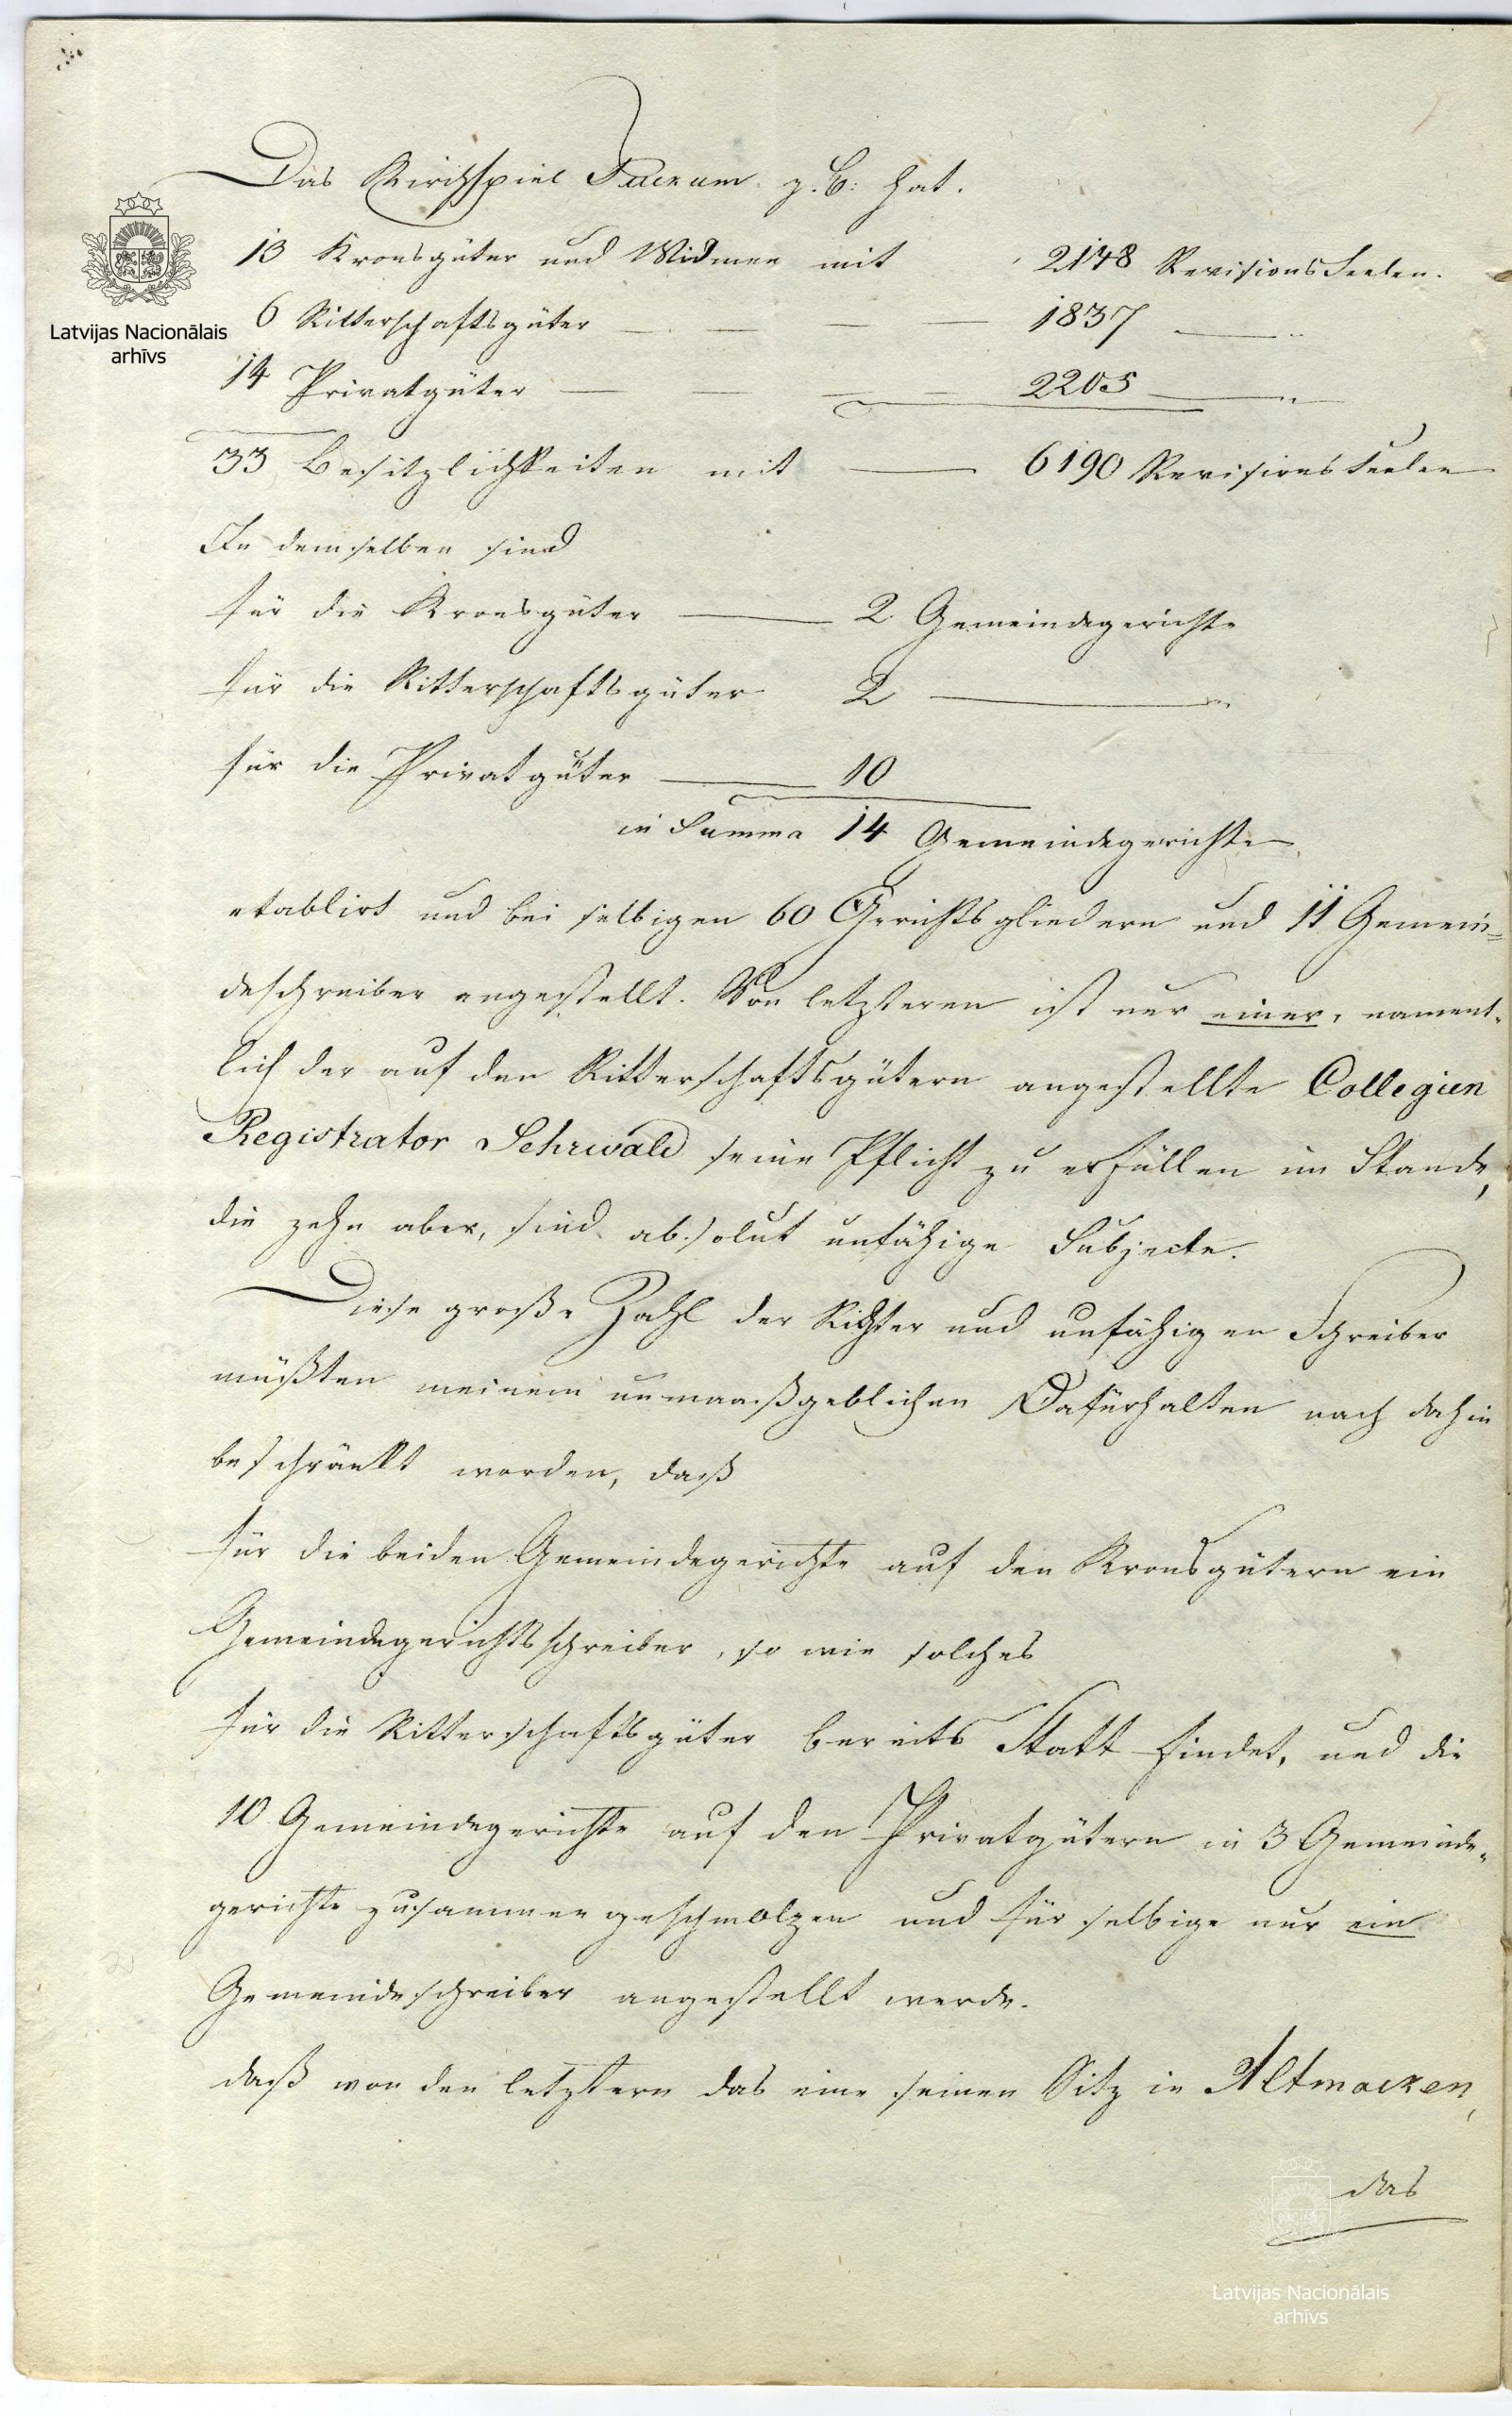 Das Kirchspiel Tuckum z. B: hat.
13 Kronsgüter und Widmen mit 2148 Revisions Seelen.
6 Ritterschaftsgüter — — — — 1837 — „
14 Privatgüter — — — — 2205 — „
33 Besitzlichkeiten mit — 6190 Revisions Seelen
In demselben sind
für die Kronsgüter — 2 Gemeindegerichte
für die Ritterschaftsgüter 2 — „
für die Privatgüter — 10
in Summa 14 Gemeindegerichte
etablirt und bei selbigen 60 Gerichtsgliedern und 11 Gemein-
deschreiber angestellt. Von letzteren ist nur einer, nament-
lich der auf den Ritterschaftsgütern angestellte Collegien
Registrator Sehrwald seine Pflicht zu erfüllen im Stande,
die zehn aber, sind absolut unfähige Subjecte.
Diese große Zahl der Richter und unfähigen Schreiber
müßten meinem unmaaßgeblichen Dafürhalten nach dahin
beschränkt werden, daß
für die beiden Gemeindegerichte auf den Kronsgütern ein
Gemeindegerichtsschreiber, so wie solches
für die Ritterschaftsgüter bereits Statt findet, und die
10 Gemeindegerichte auf den Privatgütern in 3 Gemeinde-
gerichte zusammengeschmolzen und für selbige nur ein
Gemeindeschreiber angestellt werde.
daß von den letztern das eine seinen Sitz in Altmocken,
das
Latvijas Nacionālais
arhīvs
Latvijas Nacionālais
arhīvs